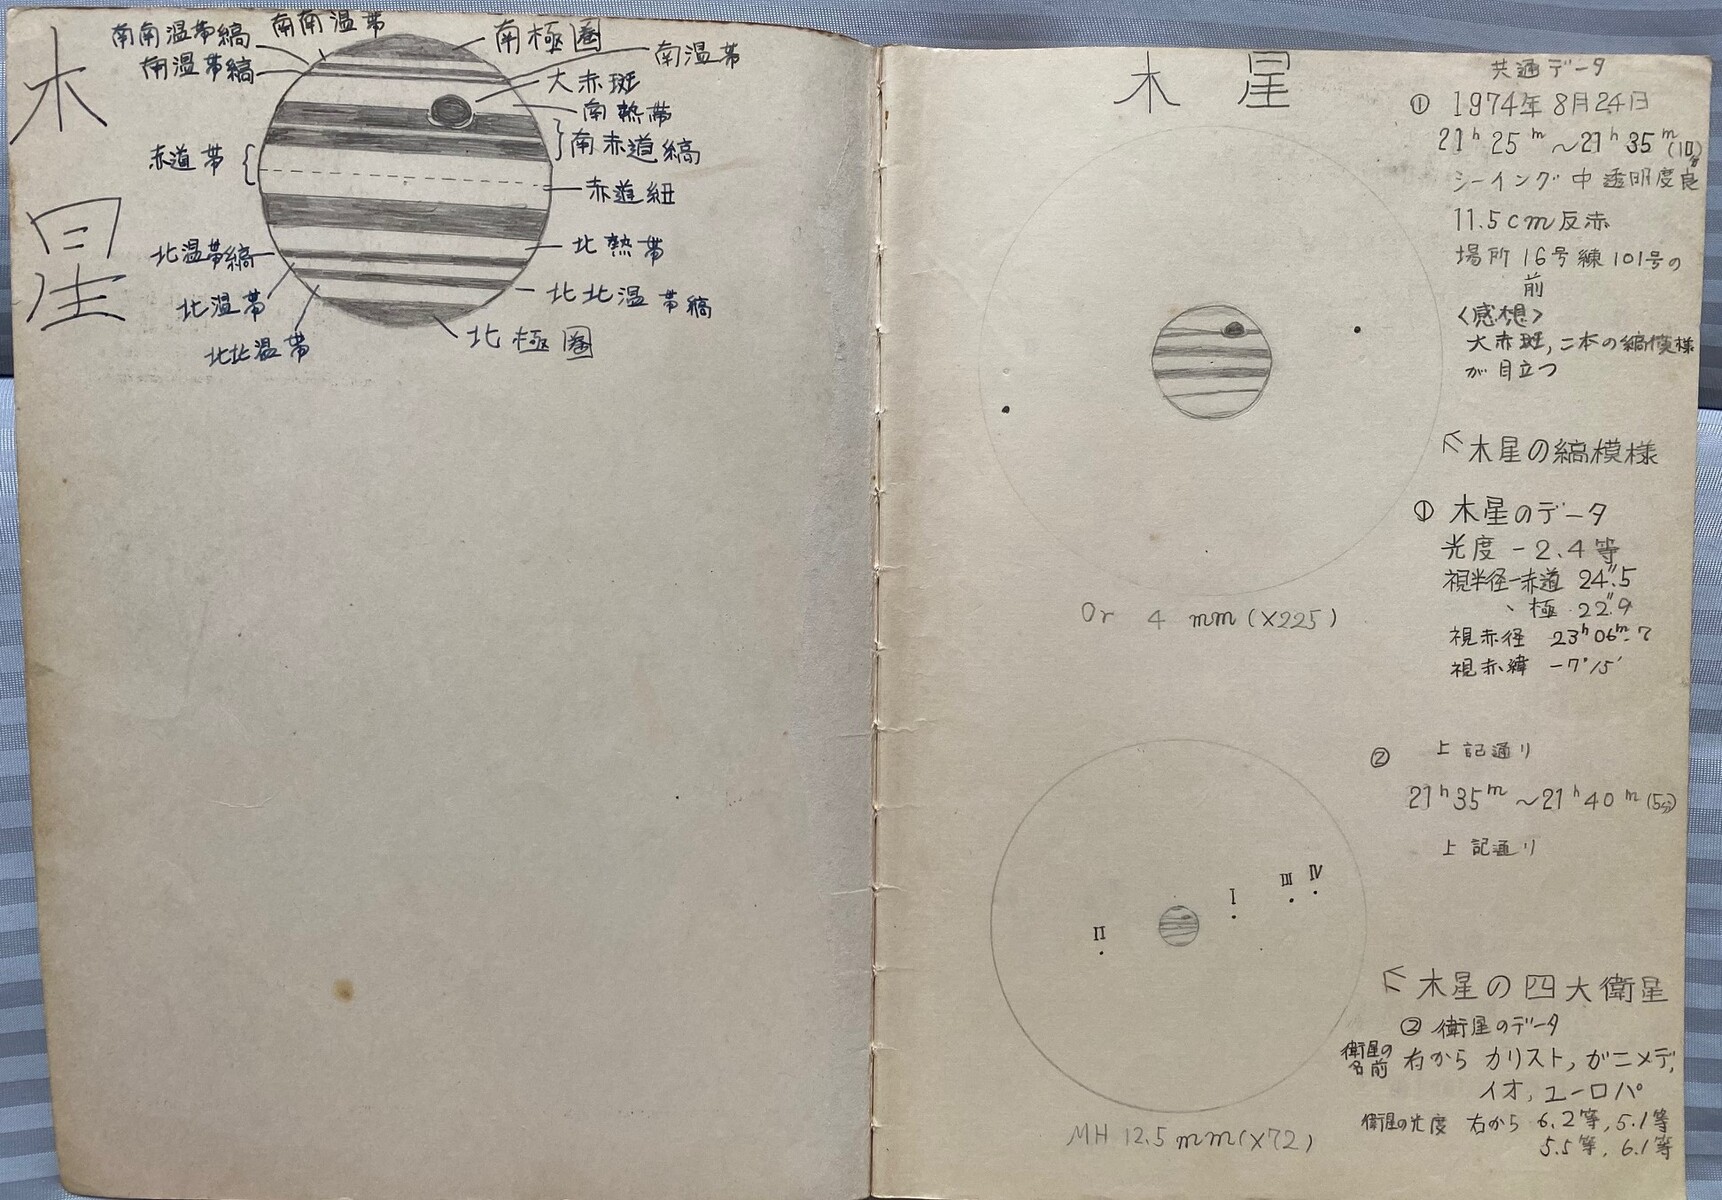 木星
南南温帯縞
南南温帯
南極圏
南温帯縞
南温帯
大赤斑
南熱帯
南赤道縞
赤道帯
赤道紐
北温帯縞
北熱帯
北温帯
北北温帯縞
北北温帯
北極圏
木星
共通データ
① 1974年8月24日
21h25m〜21h35m(10分)
シーイング中 透明度良
11.5cm反赤
場所 16号練101号の
前
<感想>
大赤斑,二本の縞模様
が目立つ
木星の縞模様
① 木星のデータ
光度 -2.4等
視半径-赤道 24″.5
〃 極 22″.9
視赤径 23h06m.7
視赤緯 -7°15′
Or 4 mm (×225)
② 上記通り
21h35m〜21h40m(5分)
上記通り
I
II
III
IV
木星の四大衛星
② 衛星のデータ
衛星の名前 右から カリスト,ガニメデ,
イオ,ユーロパ
衛星の光度 右から 6.2等,5.1等
5.5等,6.1等
MH 12.5mm(×72)